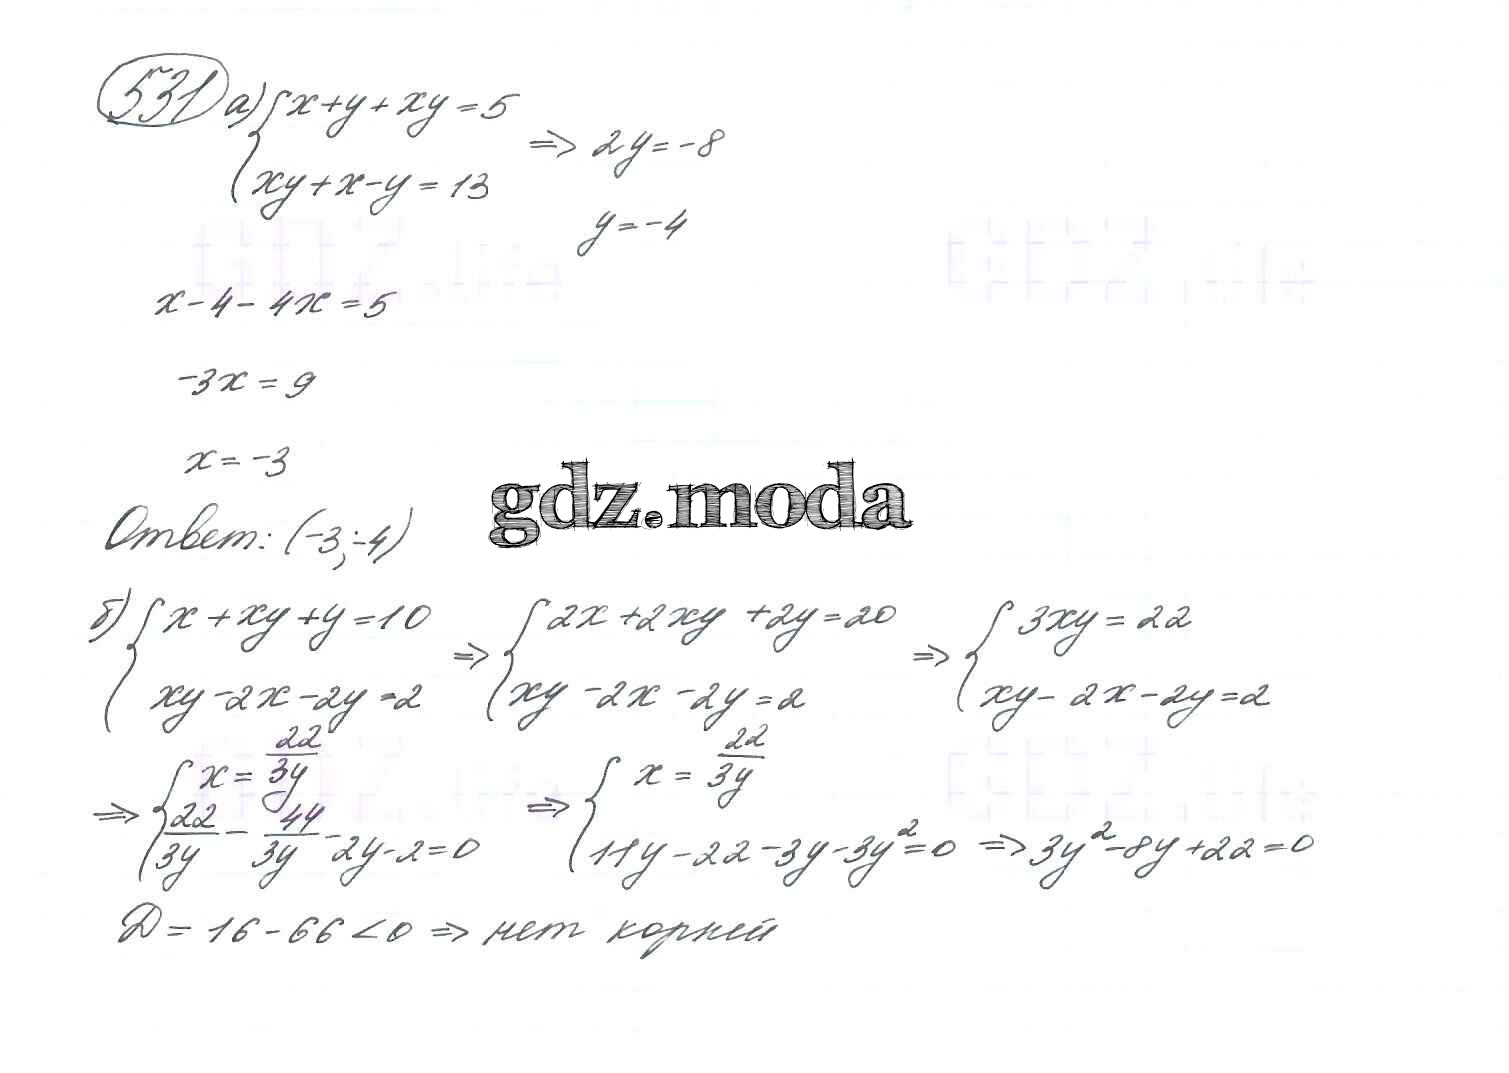 531 а) { x + y + xy = 5
xy + x - y = 13
=> 2y = -8
y = -4
x - 4 - 4x = 5
-3x = 9
x = -3
Ответ: (-3; -4)
gdz.moda
б) { x + xy + y = 10
xy - 2x - 2y = 2
=> { 2x + 2xy + 2y = 20
xy - 2x - 2y = 2
=> { 3xy = 22
xy - 2x - 2y = 2
=> { x = 22/3y
22/3y - 44/3y - 2y - 2 = 0
=> { x = 22/3y
11y - 22 - 3y - 3y² = 0 => 3y² - 8y + 22 = 0
D = 16 - 66 < 0 => нет корней